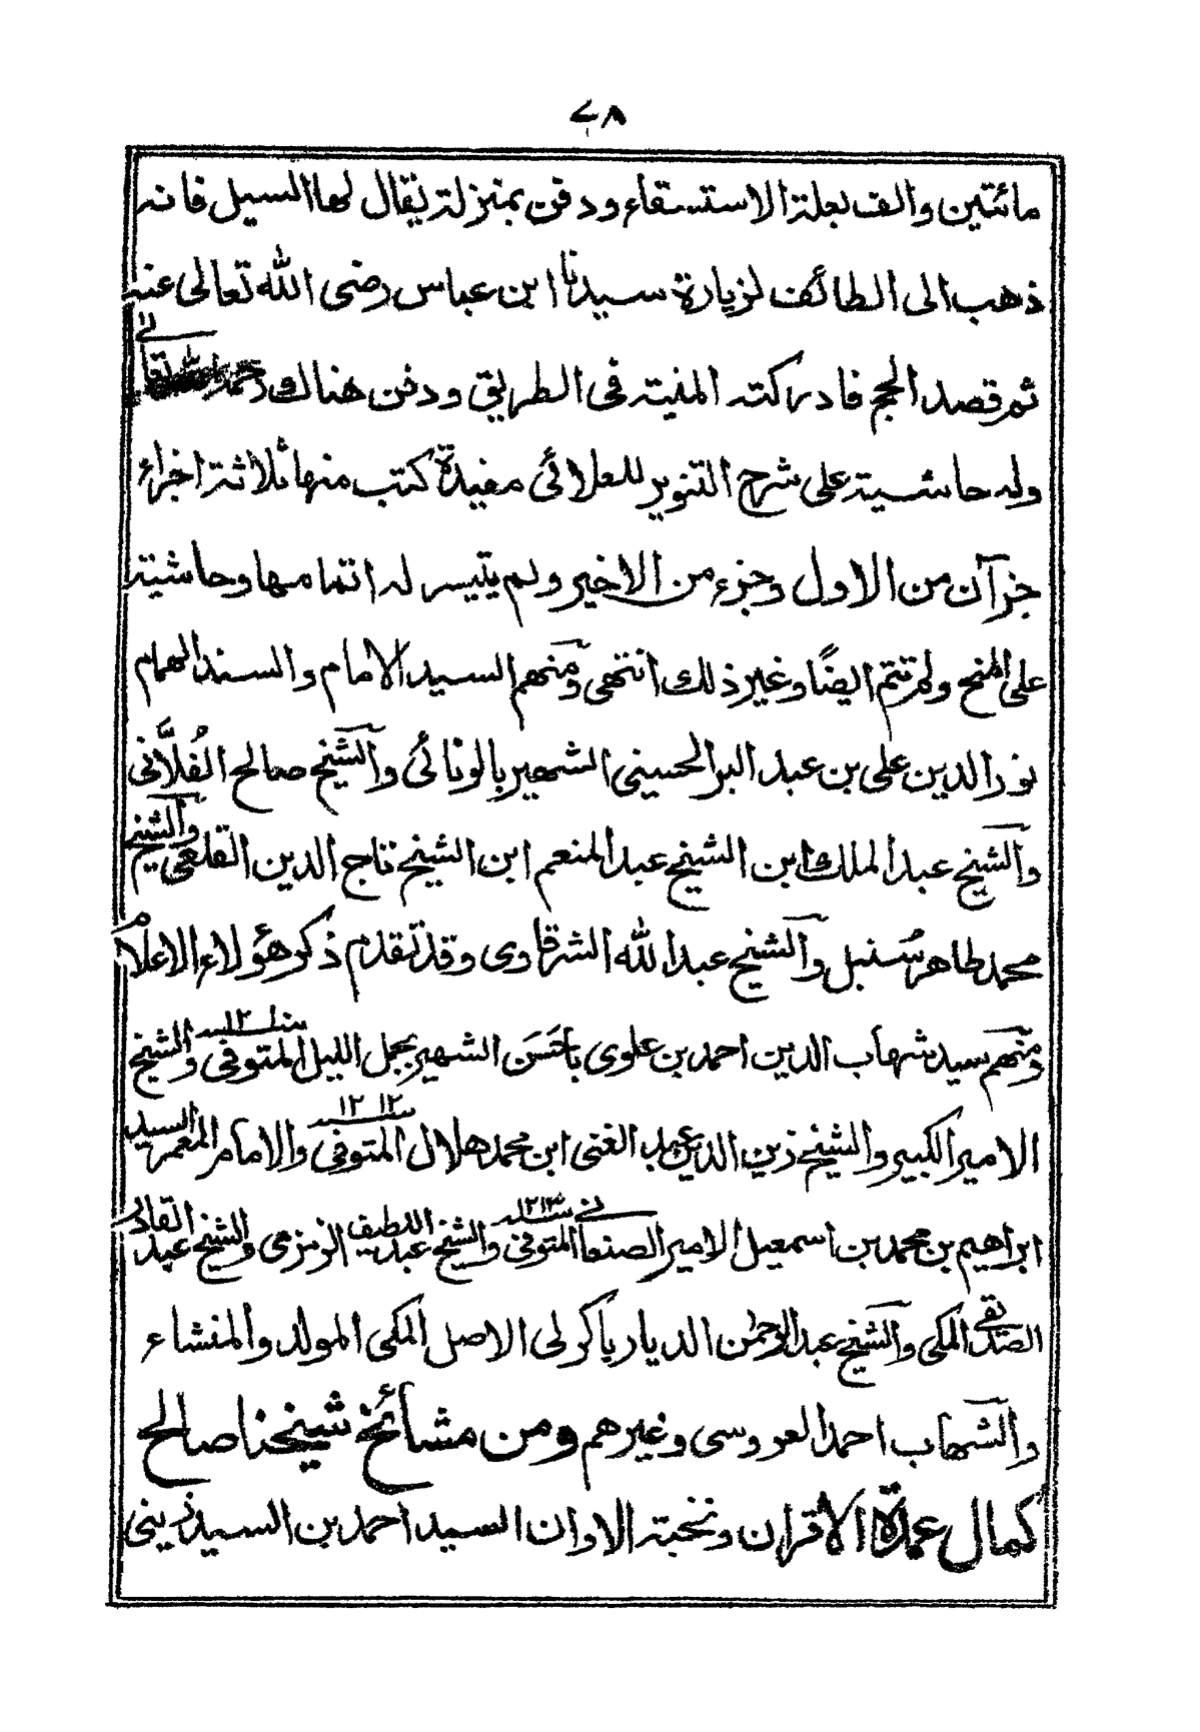 ٧٨
مائتين والف بعلة الاستسقاء ودفن بمنزلة يقال لها السيل فانه
ذهب الى الطائف لزيارة سيدنا ابن عباس رضى الله تعالى عنه
ثم قصد الحج فادركته المنية فى الطريق ودفن هناك رحمه الله تعالى
وله حاشية على شرح التنوير للعلائى مفيدة كتب منها ثلاثة اجزاء
جزآن من الاول وجزء من الاخير ولم يتيسر له اتمامها وحاشية
على المنح ولم تتم ايضًا وغير ذلك انتهى ومنهم السيد الامام والسند الهمام
نور الدين على بن عبد البر الحسينى الشهير بالونائى والشيخ صالح الفُلاَّنى
والشيخ عبد الملك ابن الشيخ عبد المنعم ابن الشيخ تاج الدين القلعى والشيخ
محمد طاهر سُنبل والشيخ عبد الله الشرقاوى وقد تقدم ذكر هؤلاء الاعلام
ومنهم سيد شهاب الدين احمد بن علوى باحَسَن الشهير بجمل الليل المتوفى والشيخ
الامير الكبير والشيخ زين الدين عبد الغنى ابن محمد هلال المتوفى ١٢١٢ والامام المعمر السيد
ابراهيم بن محمد بن اسمعيل الامير الصنعانى المتوفى ١٢١٣ والشيخ عبد اللطيف الزمزمى والشيخ عبد القادر
الصديقى المكى والشيخ عبد الرحمن الديار باكرلى الاصل المكى المولد والمنشاء
والشهاب احمد العروسى وغيرهم ومن مشائخ شيخنا صالح
كمال عمدة الاقران ونخبة الاوان السيد احمد بن السيد زينى